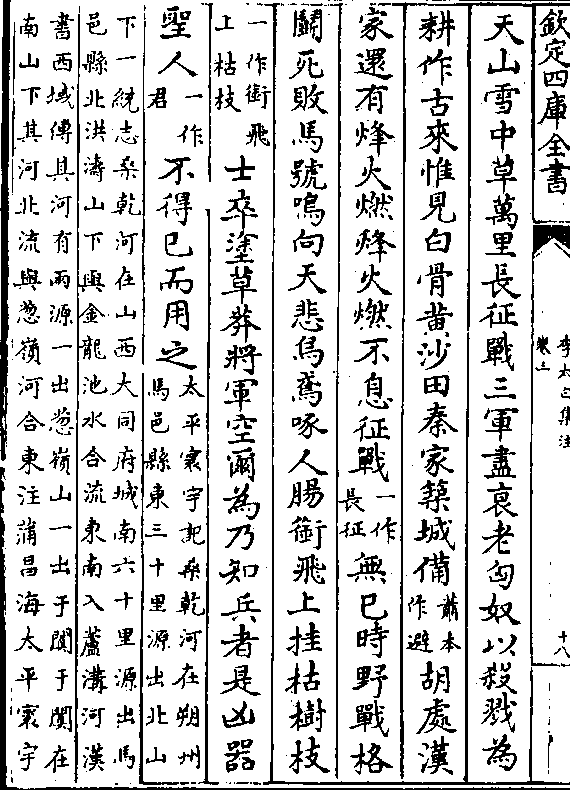 欽定四庫全書
李太白集注
卷三
十八
天山雪中草萬里長征戰三軍盡衰老匈奴以殺戮為
耕作古來惟見白骨黃沙田秦家築城備蕭本作避胡處漢
家還有烽火燃烽火燃不息征戰一作長征無已時野戰格
鬭死敗馬號鳴向天悲烏鳶啄人腸銜飛上挂枯樹枝
一作銜飛上枯枝士卒塗草莽將軍空爾為乃知兵者是凶器
聖人一作君不得已而用之太平寰宇記桑乾河在朔州馬邑縣東三十里源出北山
下一統志桑乾河在山西大同府城南六十里源出馬
邑縣北洪濤山下與金龍池水合流東南入蘆溝河漢
書西域傳其河有兩源一出葱嶺山一出于闐于闐在
南山下其河北流與葱嶺河合東注蒲昌海太平寰宇